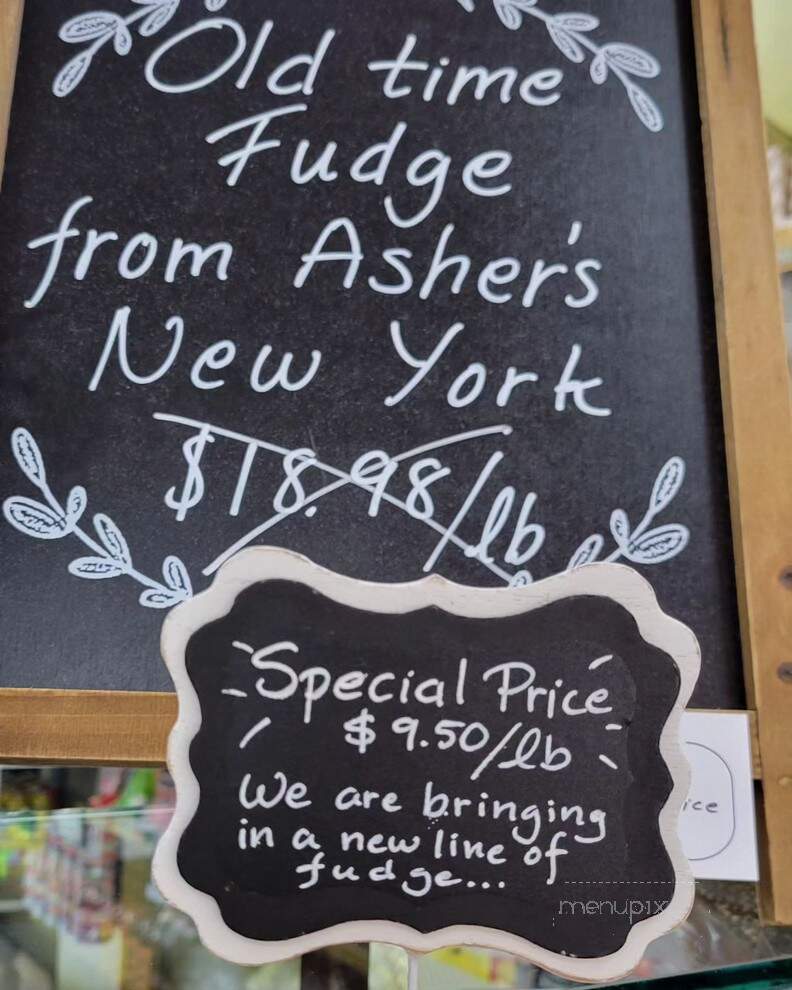 Old time
Fudge
from Asher's
New York
$18.98/lb
Special Price
$9.50/lb
We are bringing
in a new line of
fudge...
ice
menupix